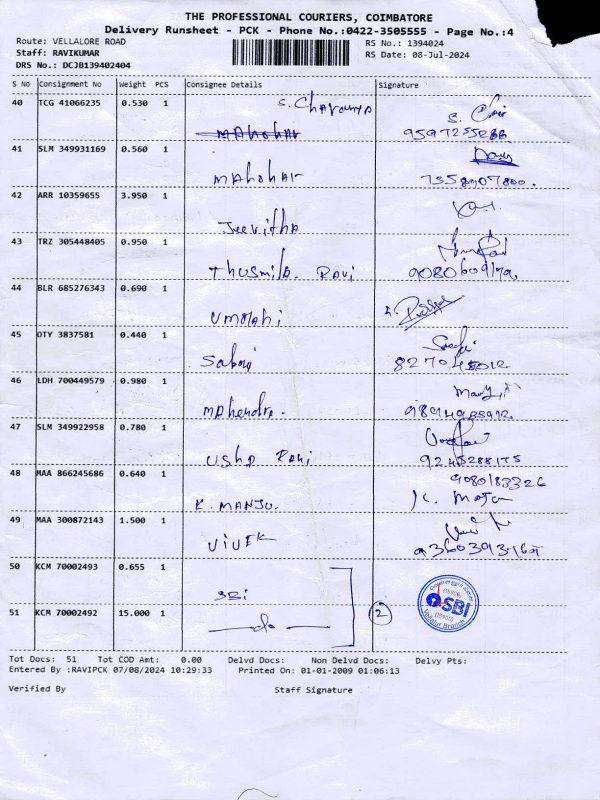 THE PROFESSIONAL COURIERS, COIMBATORE
Delivery Runsheet - PCK - Phone No.:0422-3505555 - Page No.:4
Route: VELLALORE ROAD RS No.: 1394024
Staff: RAVIKUMAR RS Date: 08-Jul-2024
DRS No.: DCJB139402404
S No Consignment No Weight PCS Consignee Details Signature
40 TCG 41066235 0.530 1 S.
Mahohar
41 SLM 349931169 0.560 1
Mahohar 7358907800.
42 ARR 10359655 3.950 1
Jeevitha
43 TRZ 305448405 0.950 1
Thusmila. Ravi
44 BLR 685276343 0.690 1
45 OTY 3837581 0.440 1
46 LDH 700449579 0.980 1
Mahendra.
47 SLM 349922958 0.780 1
Usha Rani 9245288175
48 MAA 866245686 0.640 1 9080183326
K. MANJU.
49 MAA 300872143 1.500 1
VIVEK
50 KCM 70002493 0.655 1
SBI SBI
51 KCM 70002492 15.000 1 2
Vellalur Branch
Tot Docs: 51 Tot COD Amt: 0.00 Delvd Docs: Non Delvd Docs: Delvy Pts:
Entered By :RAVIPCK 07/08/2024 10:29:33 Printed On: 01-01-2009 01:06:13
Verified By Staff Signature